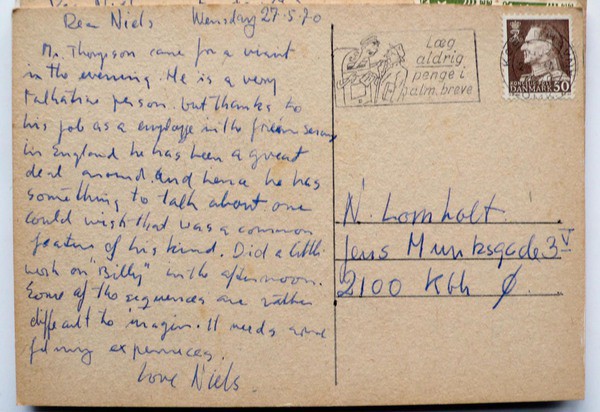 Dear Niels Wensday 27.5.70
Mr. Thompson came for a visit
in the evening. He is a very
talkative person. but thanks to
his job as a employe in the prison
in England he has been a great
deal around. and hence he has
something to talk about. one
could wish that was a common
feature of his kind. Did a little
work on "Billy" in the afternoon.
Some of the sequences are rather
difficult to imagin. It needs some
filming
Love Niels.
Læg
aldrig
penge i
alm. breve
DANMARK 50
N. Lomholt.
Jens Munksgade 3 V
2100 Kbh Ø